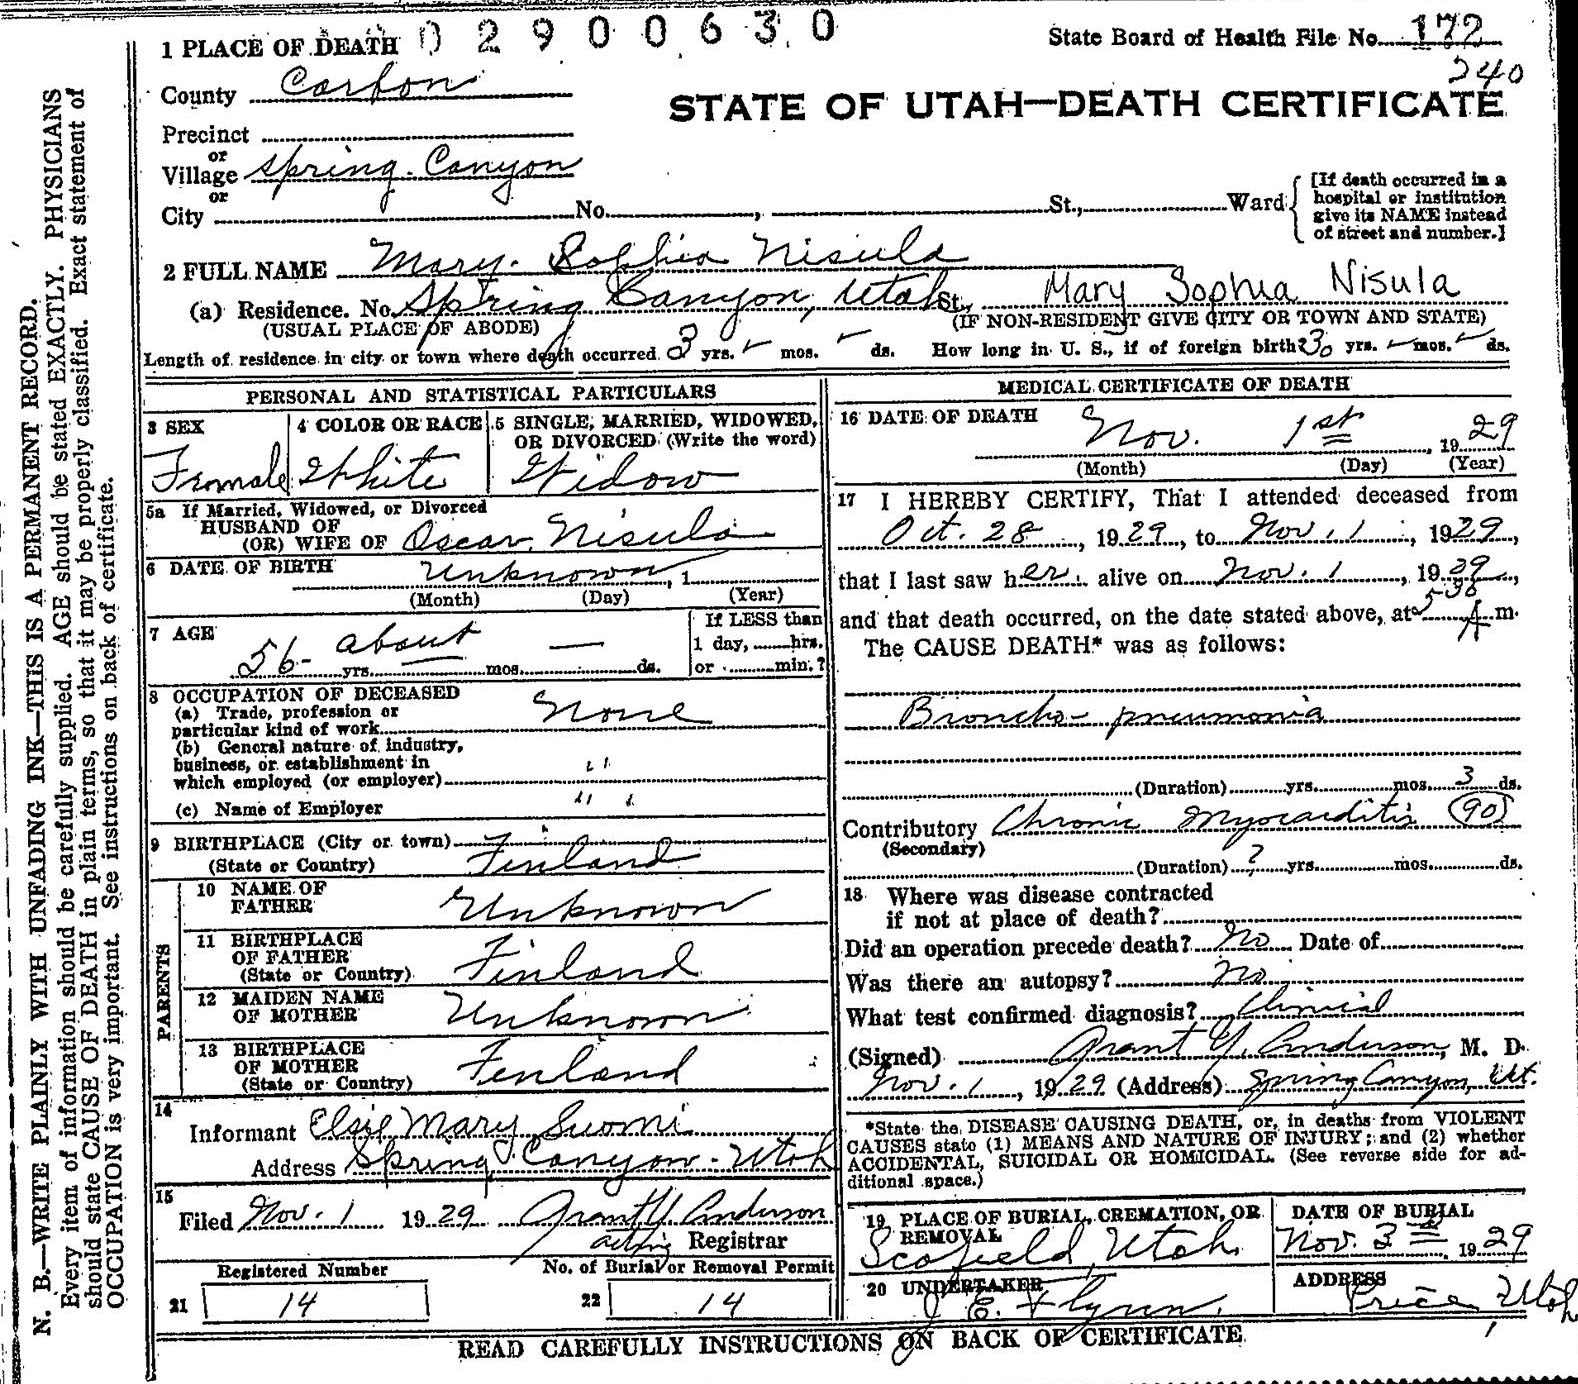 1 PLACE OF DEATH 02900630
State Board of Health File No. 172
240
County Carbon
STATE OF UTAH—DEATH CERTIFICATE
Precinct
or
Village Spring Canyon
or
City No. , St., Ward
[If death occurred in a
hospital or institution
give its NAME instead
of street and number.]
2 FULL NAME Mary Sophia Nisula
(a) Residence. No. Spring Canyon, Utah St., Mary Sophia Nisula
(USUAL PLACE OF ABODE) (IF NON-RESIDENT GIVE CITY OR TOWN AND STATE)
Length of residence in city or town where death occurred 3 yrs. mos. ds. How long in U. S., if of foreign birth 30 yrs. mos. ds.
PERSONAL AND STATISTICAL PARTICULARS
3 SEX 4 COLOR OR RACE 5 SINGLE, MARRIED, WIDOWED,
OR DIVORCED (Write the word)
Female White Widow
5a If Married, Widowed, or Divorced
HUSBAND OF
(OR) WIFE OF Oscar Nisula
6 DATE OF BIRTH Unknown, 1
(Month) (Day) (Year)
7 AGE about
56 — yrs. mos. — ds.
If LESS than
1 day, hrs.
or min.?
8 OCCUPATION OF DECEASED
(a) Trade, profession or
particular kind of work None
(b) General nature of industry,
business, or establishment in
which employed (or employer) "
(c) Name of Employer "
9 BIRTHPLACE (City or town)
(State or Country) Finland
PARENTS
10 NAME OF
FATHER Unknown
11 BIRTHPLACE
OF FATHER
(State or Country) Finland
12 MAIDEN NAME
OF MOTHER Unknown
13 BIRTHPLACE
OF MOTHER
(State or Country) Finland
14
Informant Elsie Mary Suomi
Address Spring Canyon - Utah
15
Filed Nov. 1 1929 Grant Y. Anderson
acting Registrar
Registered Number No. of Burial or Removal Permit
21 14 22 14
MEDICAL CERTIFICATE OF DEATH
16 DATE OF DEATH Nov. 1st, 1929
(Month) (Day) (Year)
17 I HEREBY CERTIFY, That I attended deceased from
Oct. 28, 1929, to Nov. 1, 1929,
that I last saw her alive on Nov. 1, 1929,
and that death occurred, on the date stated above, at 530 A m.
The CAUSE DEATH* was as follows:
Broncho-pneumonia
(Duration) yrs. mos. 3 ds.
Contributory Chronic Myocarditis (90)
(Secondary)
(Duration) ? yrs. mos. ds.
18 Where was disease contracted
if not at place of death?
Did an operation precede death? No Date of
Was there an autopsy? No
What test confirmed diagnosis? Clinical
(Signed) Grant Y. Anderson, M. D.
Nov. 1, 1929 (Address) Spring Canyon, Ut.
*State the DISEASE CAUSING DEATH, or, in deaths from VIOLENT
CAUSES state (1) MEANS AND NATURE OF INJURY; and (2) whether
ACCIDENTAL, SUICIDAL OR HOMICIDAL. (See reverse side for ad-
ditional space.)
19 PLACE OF BURIAL, CREMATION, OR
REMOVAL
Scofield, Utah
DATE OF BURIAL
Nov. 3rd, 1929
20 UNDERTAKER
J. E. Flynn.
ADDRESS
Price, Utah
READ CAREFULLY INSTRUCTIONS ON BACK OF CERTIFICATE
N. B.—WRITE PLAINLY WITH UNFADING INK—THIS IS A PERMANENT RECORD.
Every item of information should be carefully supplied. AGE should be stated EXACTLY. PHYSICIANS
should state CAUSE OF DEATH in plain terms, so that it may be properly classified. Exact statement of
OCCUPATION is very important. See instructions on back of certificate.